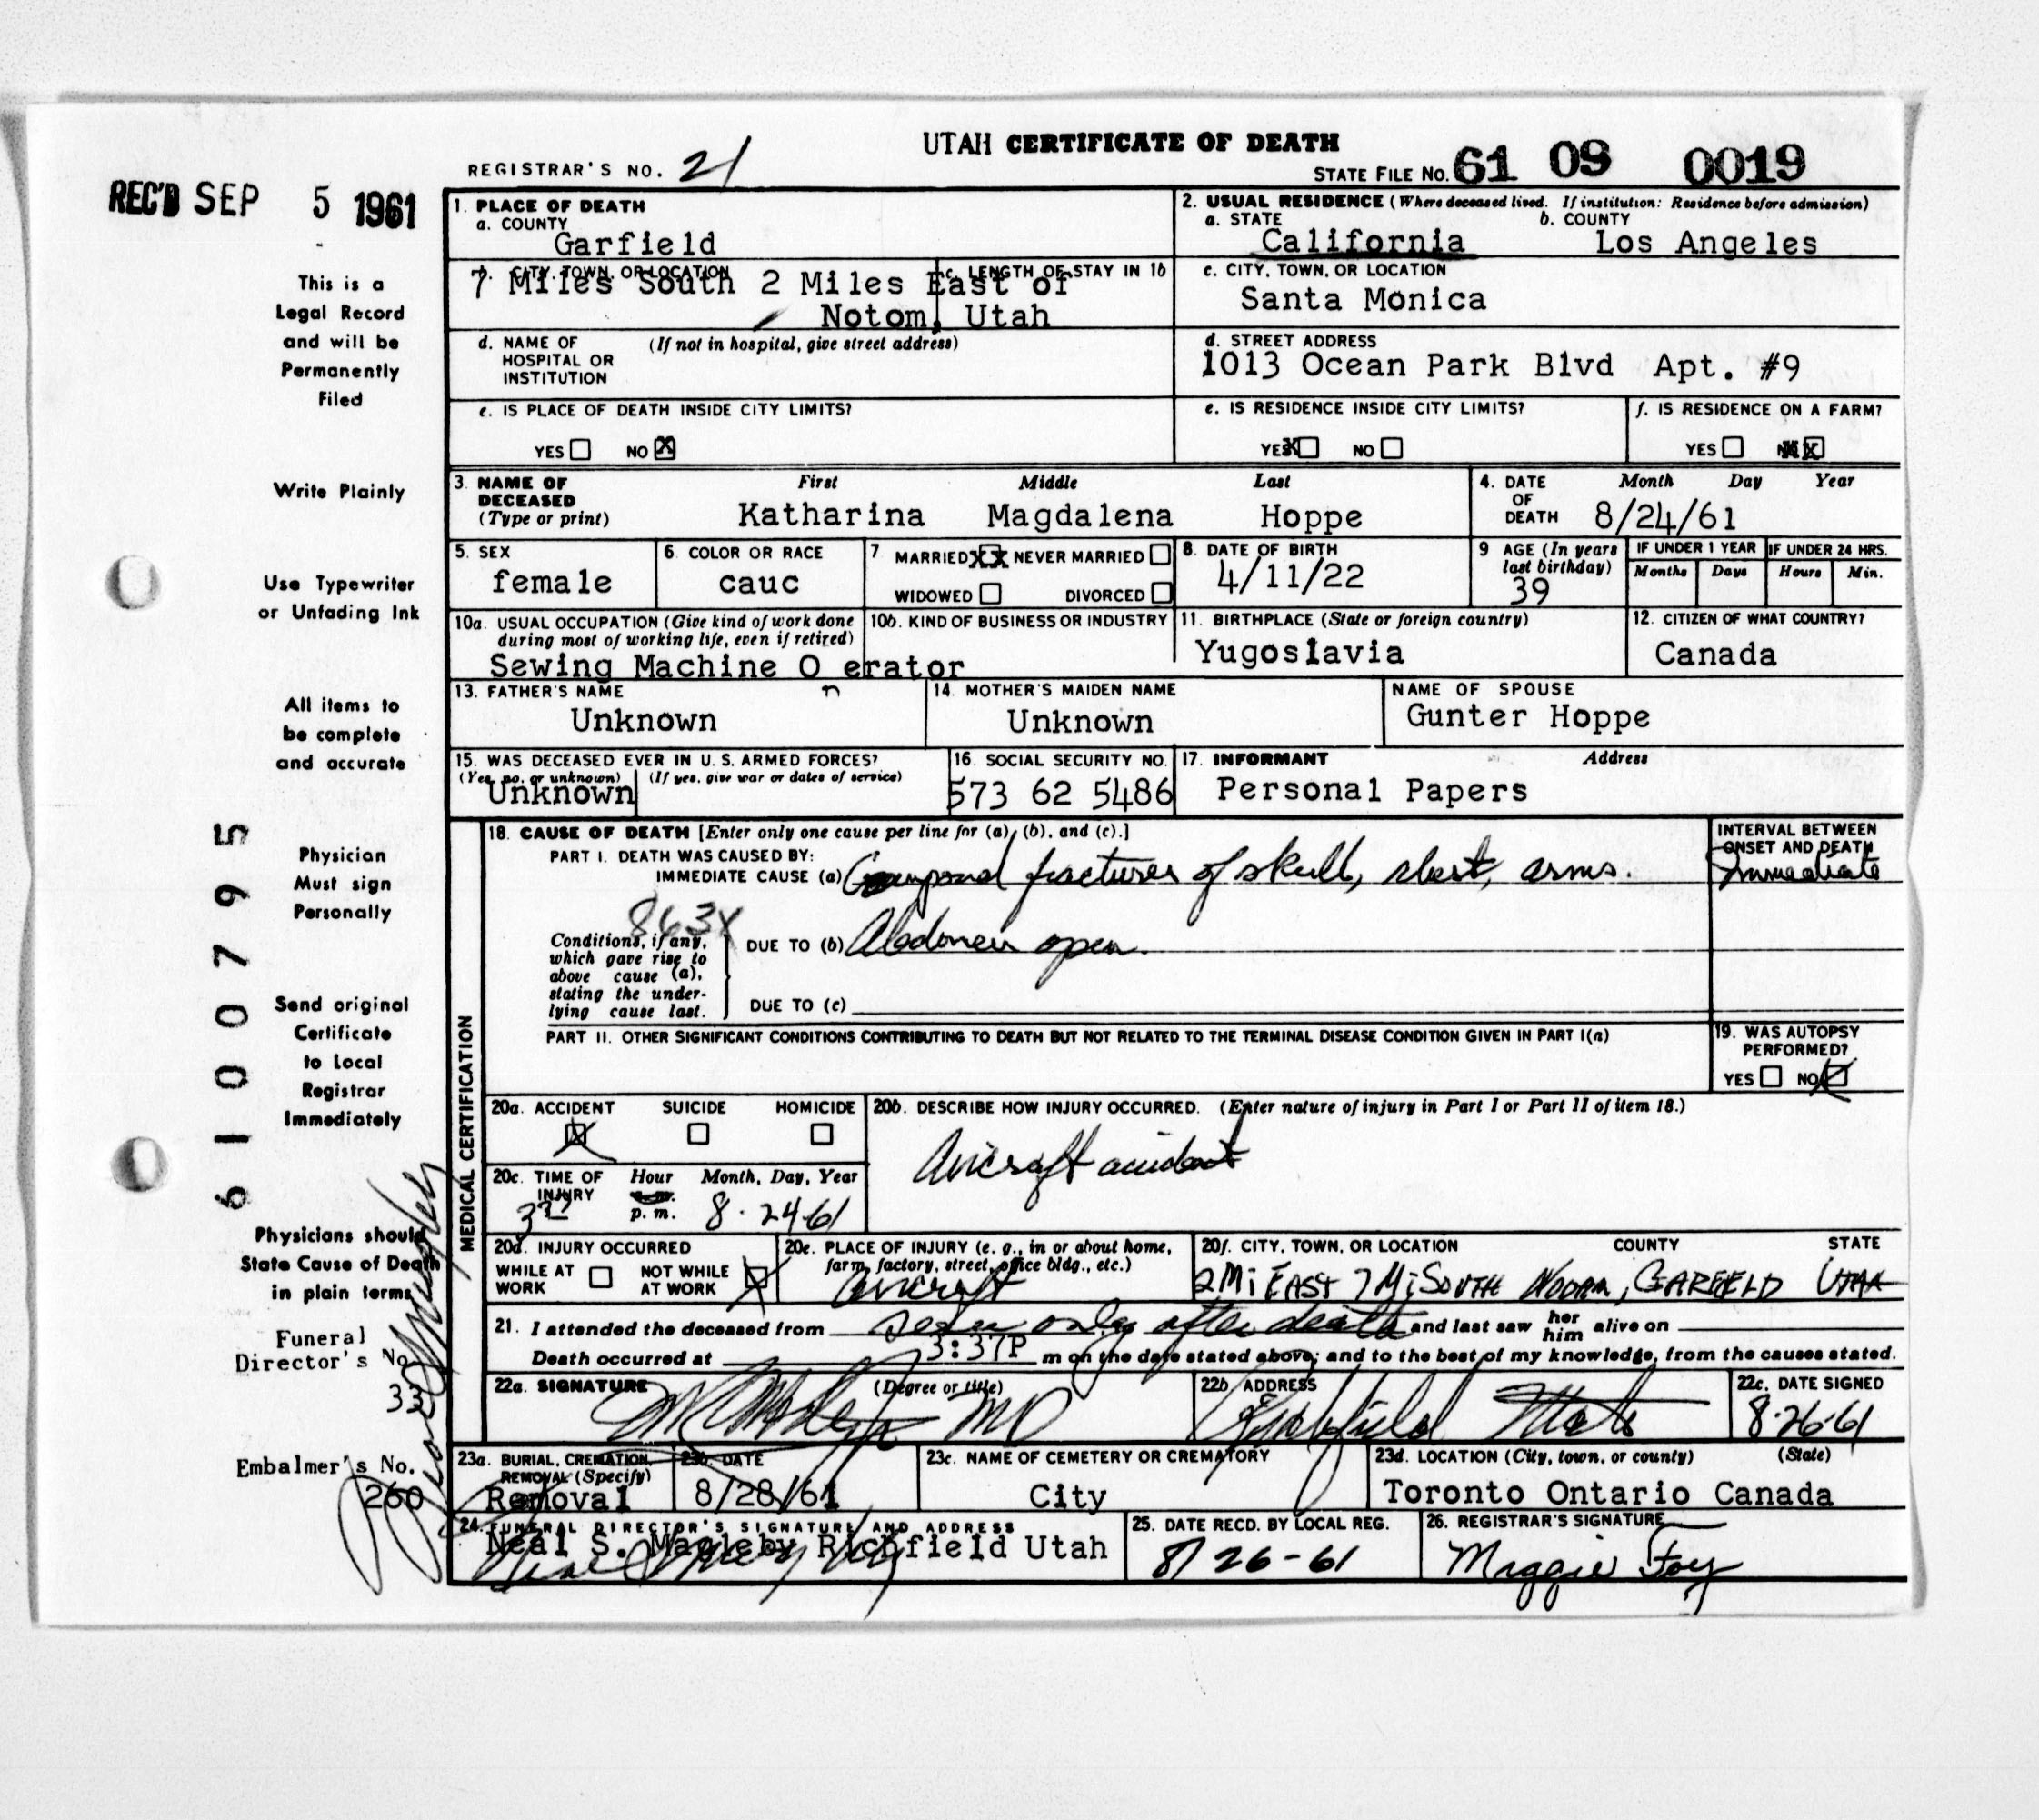 UTAH CERTIFICATE OF DEATH
REGISTRAR'S NO. 21
STATE FILE No. 61 09 0019
REC'D SEP 5 1961
This is a
Legal Record
and will be
Permanently
Filed
Write Plainly
Use Typewriter
or Unfading Ink
All items to
be complete
and accurate
Physician
Must sign
Personally
Send original
Certificate
to Local
Registrar
Immediately
6100795
Physicians should
State Cause of Death
in plain terms
Funeral
Director's No
33
Embalmer's No.
260
1. PLACE OF DEATH
a. COUNTY
Garfield
b. CITY, TOWN, OR LOCATION
c. LENGTH OF STAY IN 1b
7 Miles South 2 Miles East of
Notom, Utah
d. NAME OF HOSPITAL OR INSTITUTION (If not in hospital, give street address)
e. IS PLACE OF DEATH INSIDE CITY LIMITS?
YES NO X
2. USUAL RESIDENCE (Where deceased lived. If institution: Residence before admission)
a. STATE b. COUNTY
California Los Angeles
c. CITY, TOWN, OR LOCATION
Santa Monica
d. STREET ADDRESS
1013 Ocean Park Blvd Apt. #9
e. IS RESIDENCE INSIDE CITY LIMITS?
YES X NO
f. IS RESIDENCE ON A FARM?
YES NO X
3. NAME OF DECEASED (Type or print)
First Middle Last
Katharina Magdalena Hoppe
4. DATE OF DEATH Month Day Year
8/24/61
5. SEX
female
6. COLOR OR RACE
cauc
7 MARRIED XX NEVER MARRIED
WIDOWED DIVORCED
8. DATE OF BIRTH
4/11/22
9 AGE (In years last birthday)
39
IF UNDER 1 YEAR
Months Days
IF UNDER 24 HRS.
Hours Min.
10a. USUAL OCCUPATION (Give kind of work done during most of working life, even if retired)
Sewing Machine O erator
10b. KIND OF BUSINESS OR INDUSTRY
11. BIRTHPLACE (State or foreign country)
Yugoslavia
12. CITIZEN OF WHAT COUNTRY?
Canada
13. FATHER'S NAME
Unknown
14. MOTHER'S MAIDEN NAME
Unknown
NAME OF SPOUSE
Gunter Hoppe
15. WAS DECEASED EVER IN U. S. ARMED FORCES?
(Yes, no, or unknown) (If yes, give war or dates of service)
Unknown
16. SOCIAL SECURITY NO.
573 62 5486
17. INFORMANT Address
Personal Papers
MEDICAL CERTIFICATION
18. CAUSE OF DEATH [Enter only one cause per line for (a), (b), and (c).]
PART I. DEATH WAS CAUSED BY:
IMMEDIATE CAUSE (a) Compound fractures of skull, chest, arms.
INTERVAL BETWEEN ONSET AND DEATH
Immediate
863X
Conditions, if any, which gave rise to above cause (a), stating the underlying cause last.
DUE TO (b) Abdomen open.
DUE TO (c)
PART II. OTHER SIGNIFICANT CONDITIONS CONTRIBUTING TO DEATH BUT NOT RELATED TO THE TERMINAL DISEASE CONDITION GIVEN IN PART I(a)
19. WAS AUTOPSY PERFORMED?
YES NO X
20a. ACCIDENT SUICIDE HOMICIDE
X
20b. DESCRIBE HOW INJURY OCCURRED. (Enter nature of injury in Part I or Part II of item 18.)
Aircraft accident
20c. TIME OF INJURY Hour Month, Day, Year
3 37 a.m. p.m. 8-24-61
20d. INJURY OCCURRED
WHILE AT WORK NOT WHILE AT WORK X
20e. PLACE OF INJURY (e. g., in or about home, farm, factory, street, office bldg., etc.)
aircraft
20f. CITY, TOWN, OR LOCATION COUNTY STATE
2 Mi EAST 7 Mi SOUTH , GARFIELD UTAH
21. I attended the deceased from seen only after death and last saw her him alive on
Death occurred at 3:37P m on the date stated above; and to the best of my knowledge, from the causes stated.
22a. SIGNATURE (Degree or title)
MD
22b. ADDRESS
Richfield Utah
22c. DATE SIGNED
8-26-61
23a. BURIAL, CREMATION, REMOVAL (Specify)
Removal
23b. DATE
8/28/61
23c. NAME OF CEMETERY OR CREMATORY
City
23d. LOCATION (City, town, or county) (State)
Toronto Ontario Canada
24. FUNERAL DIRECTOR'S SIGNATURE AND ADDRESS
Neal S. Magleby Richfield Utah
25. DATE RECD. BY LOCAL REG.
8/26-61
26. REGISTRAR'S SIGNATURE
Maggie Foy